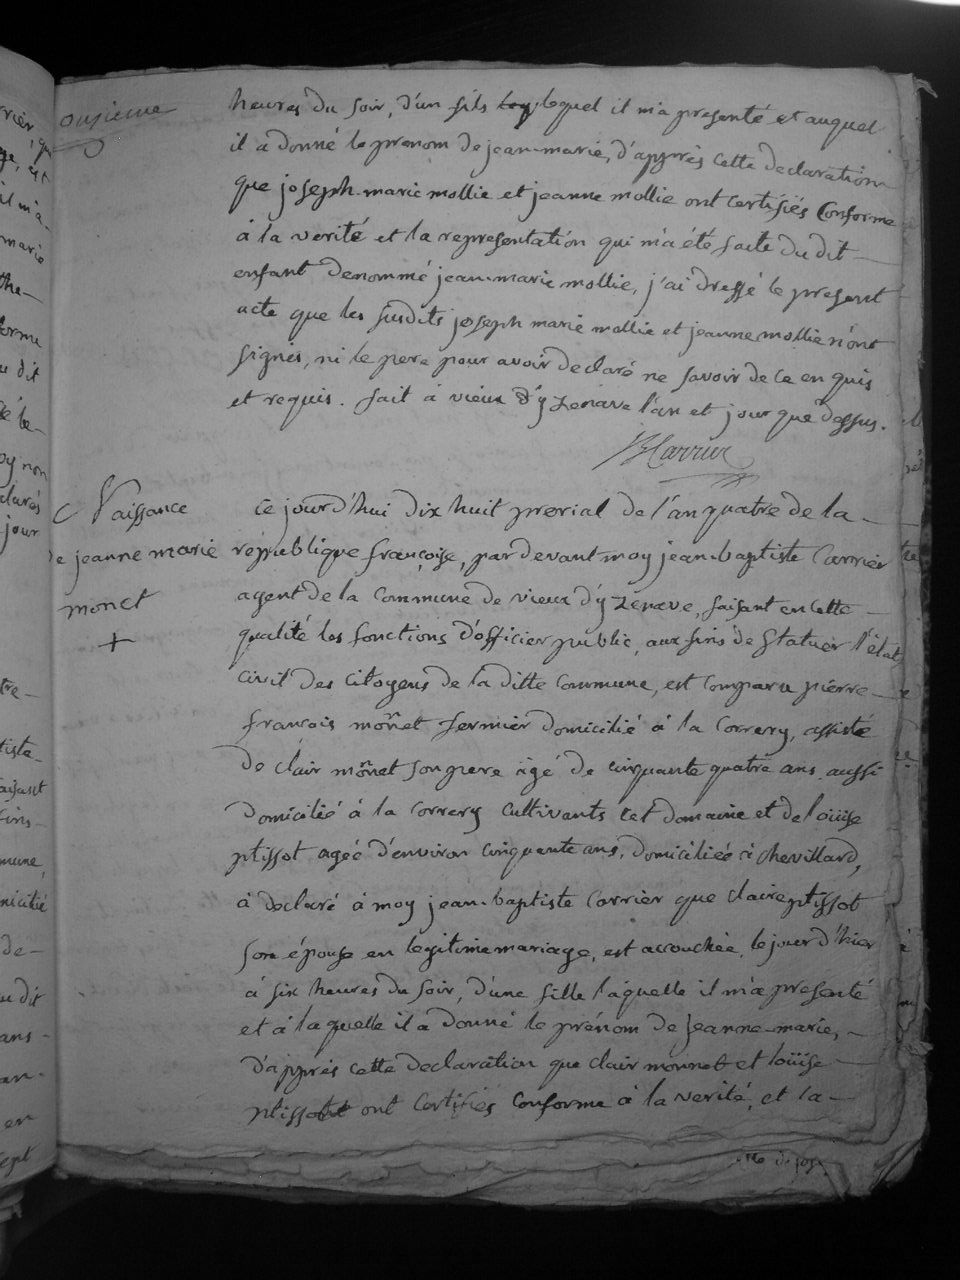 onzieme
heures du soir, d'un fils lequel il m'a presenté et auquel
il a donné le prenom de jean-marie, d'apprès cette declaration
que joseph-marie mollie et jeanne mollie ont certifiés Conforme
à la verité et la representation qui m'a été faite du dit
enfant denommé jean-marie mollie, j'ai dressé le present
acte que les susdits joseph marie mollie et jeanne mollie n'ont
signes, ni le pere pour avoir declaré ne savoir de ce en quis
et requis. fait à vieux d'yzenave l'an et jour que dessus.
JB Carrier
Naissance
de jeanne marie
monet
+
Ce jourd'hui dix huit prerial de l'an quatre de la
république françoise, par devant moy jean-baptiste Carrier
agent de la Commune de vieux d'yzenave, faisant en cette
qualité les fonctions d'officier public, aux fins de statuer l'état
civil des Citoyens de la ditte Commune, est comparu pierre
françois monet fermier domicilié à la Correry, assisté
de clair monet son pere âgé de cinquante quatre ans aussi
domicilié à la Correry cultivants cet domaine et de loüise
ptissot agée d'environ cinquante ans, domiciliée à Chevillard,
à declaré à moy jean-baptiste Carrier que claire ptissot
son épouse en legitime mariage, est accouchée le jour d'hier
à six heures du soir, d'une fille laquelle il m'a presenté
et à laquelle il a donné le prénom de Jeanne-marie,
d'apprès cette declaration que clair monnet et loüise
ptissot ont certifiés Conforme à la verité, et la